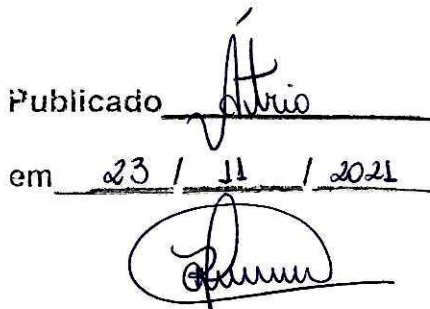 Publicado Átrio
em 23 / 11 / 2021